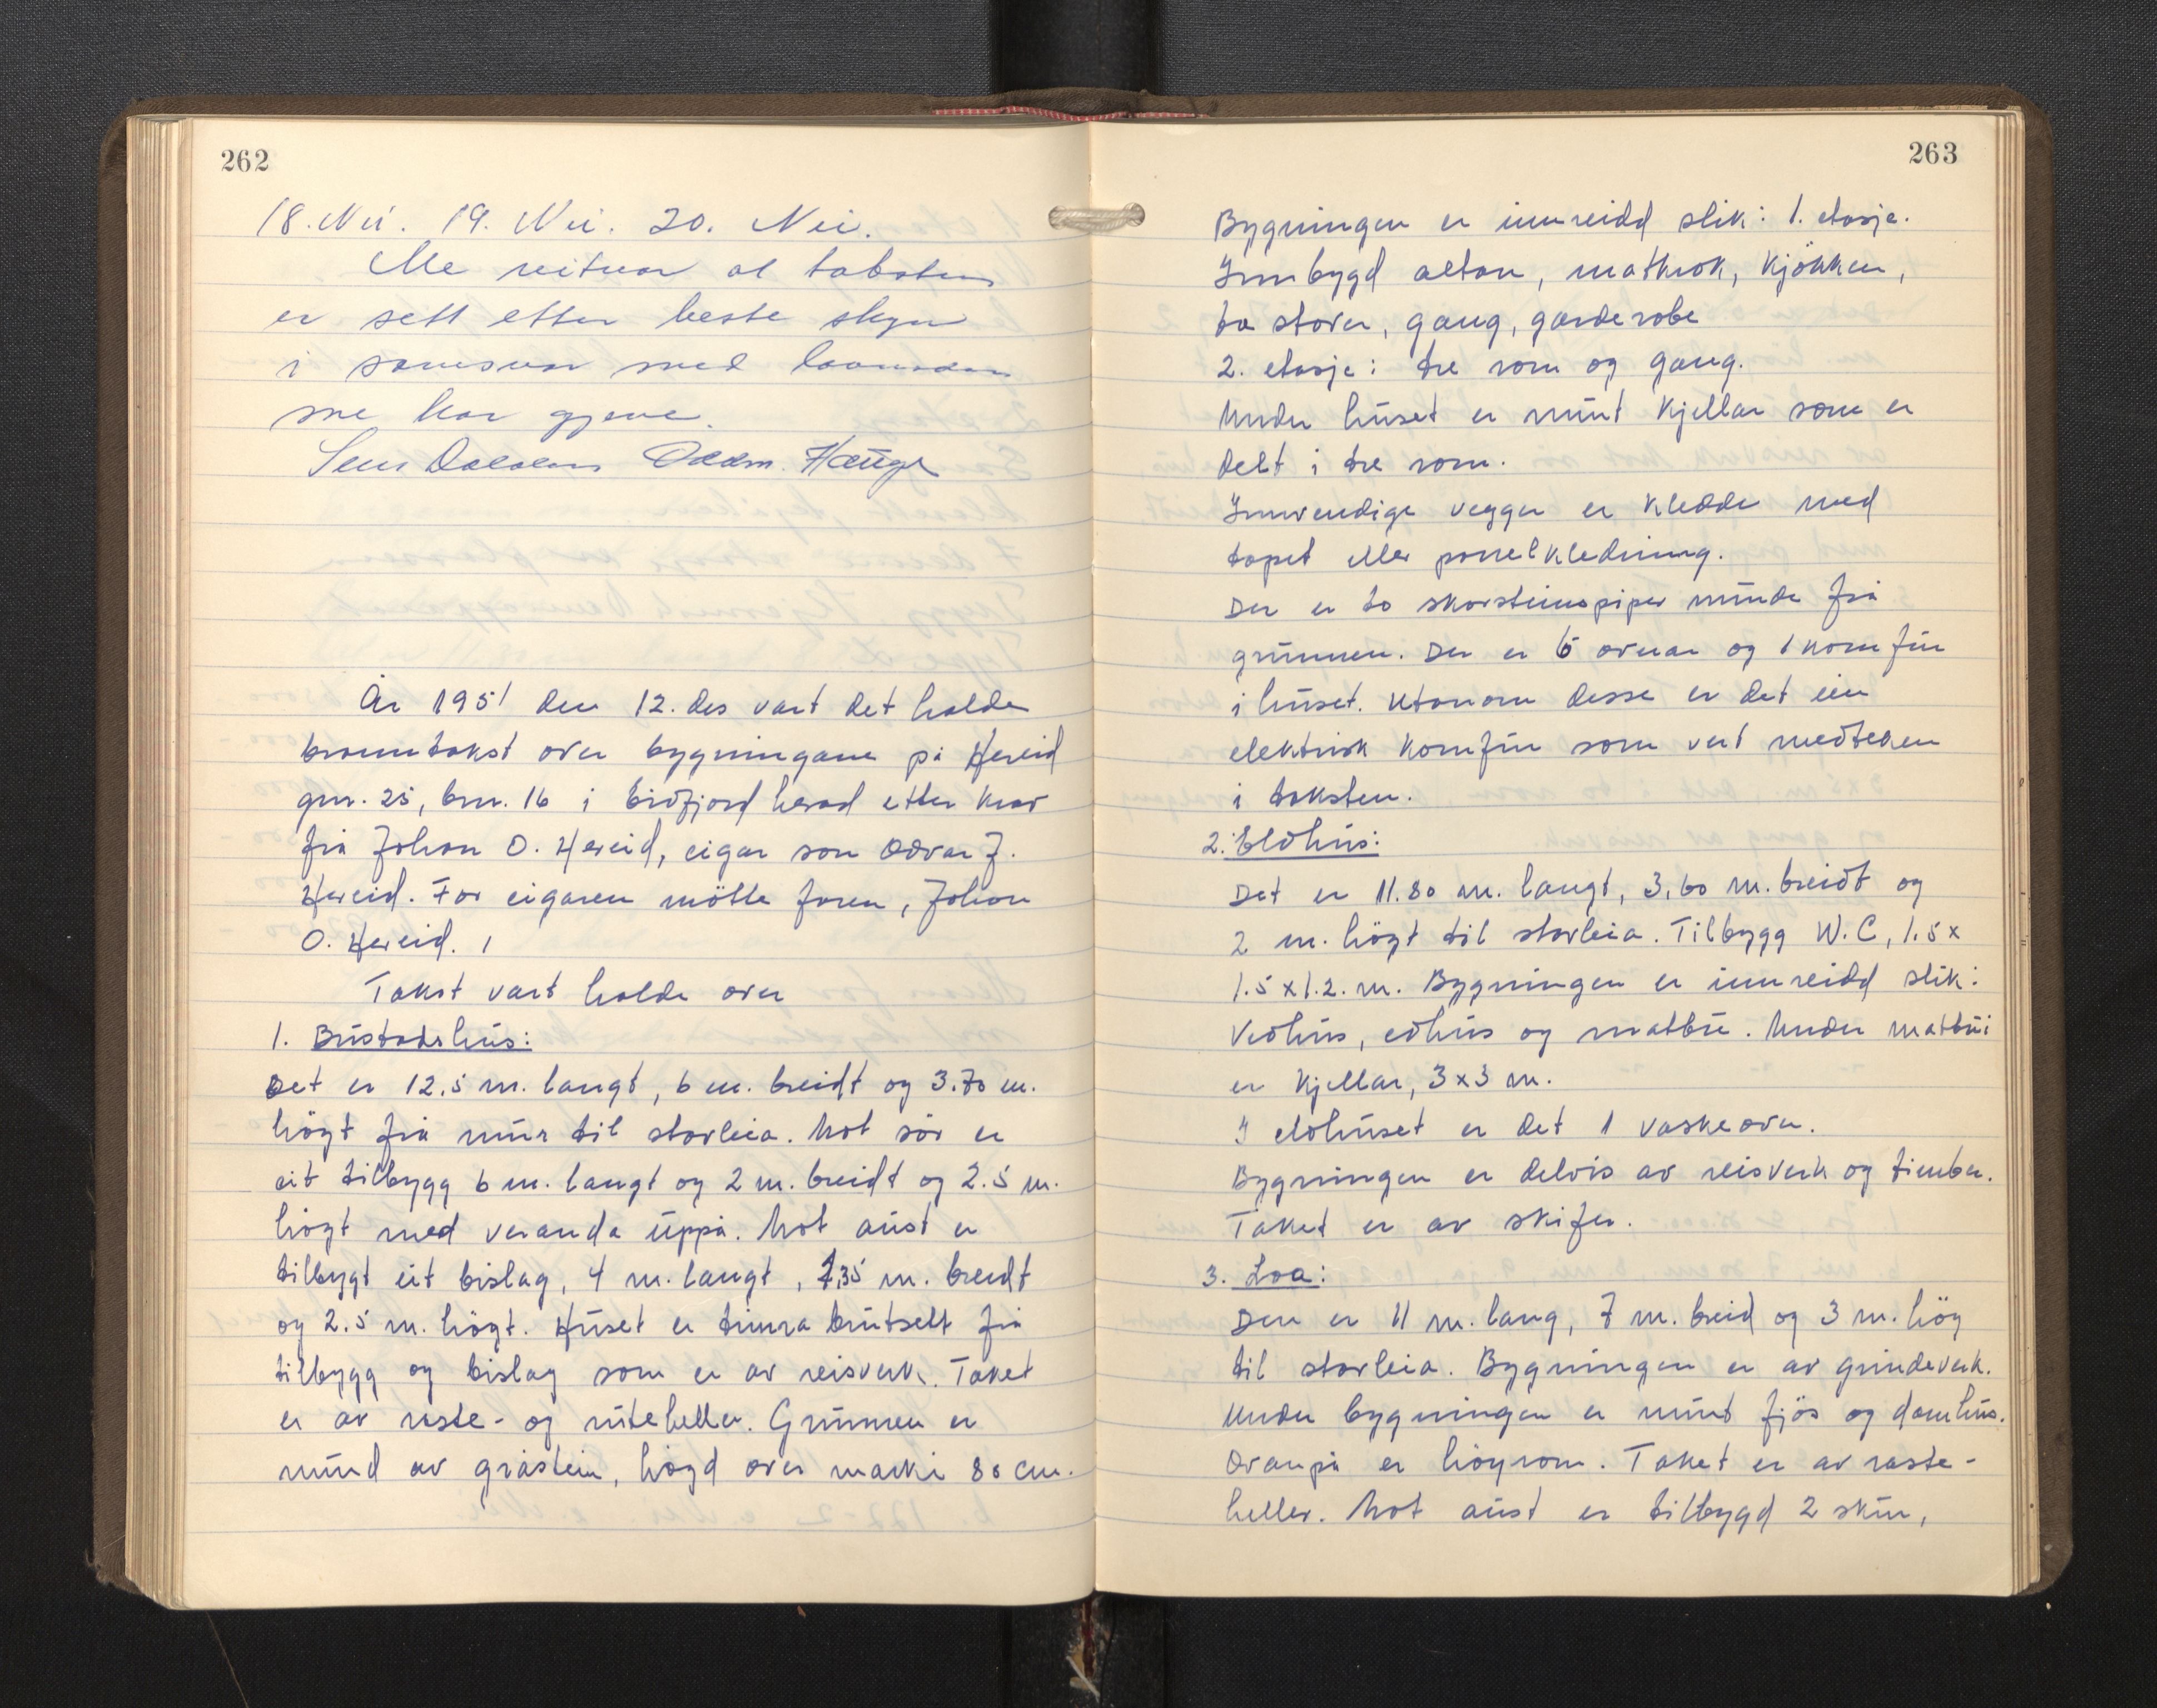 262
18. Nei. 19. Nei. 20. Nei.
Me vitnar at taksten
er sett etter beste skyn
i samsvar med
me har gjeve.
Oddm. Hauge
År 1951 den 12. des vart det halde
branntakst over bygningane på Hereid
gnr. 25, bnr. 16 i Eidfjord herad etter krav
frå Johan O. Hereid, eigar son Odvar J.
Hereid. For eigaren mötte faren, Johan
O. Hereid.
Takst vart halde over
1. Bustadshus:
Det er 12.5 m. langt, 6 m. breidt og 3.70 m.
högt frå mur til stavleia. Mot sör er
eit tilbygg 6 m. langt og 2 m. breidt og 2.5 m.
högt med veranda uppå. Mot aust er
tilbygt eit bislag, 4 m. langt, 1,35 m. breidt
og 2.5 m. högt. Huset er timra burtsett frå
tilbygg og bislag som er av reisverk. Taket
er av raste- og ruteheller. Grunnen er
murd av gråstein, högd over marki 80 cm.
263
Bygningen er innreidd slik: 1. etasje.
Innbygd altan, matkrok, kjökken,
to stover, gang, garderobe
2. etasje: tre rom og gang.
Under huset er murt kjellar som er
delt i tre rom.
Innvendige vegger er kledde med
tapet eller panelkledning.
Der er to skorsteinspiper murde frå
grunnen. Der er 6 ovnar og 1 komfur
i huset. Utanom desse er det ein
elektrisk komfur som vert medteken
i taksten.
2. Eldhus:
Det er 11.80 m. langt, 3,60 m. breidt og
2 m. högt til stavleia. Tilbygg W.C, 1.5 x
1.5 x 1.2. m. Bygningen er innreidd slik:
Vedhus, eldhus og matbu. Under matbui
er kjellar, 3 x 3 m.
I eldhuset er det 1 vaskeovn.
Bygningen er delvis av reisverk og timber.
Taket er av skifer.
3. Loa:
Den er 11 m. lang, 7 m. breid og 3 m. hög
til stavleia. Bygningen er av grindverk.
Under bygningen er murt fjös og
Ovanpå er höyrom. Taket er av raste-
heller. Mot aust er tilbygd 2 skur,